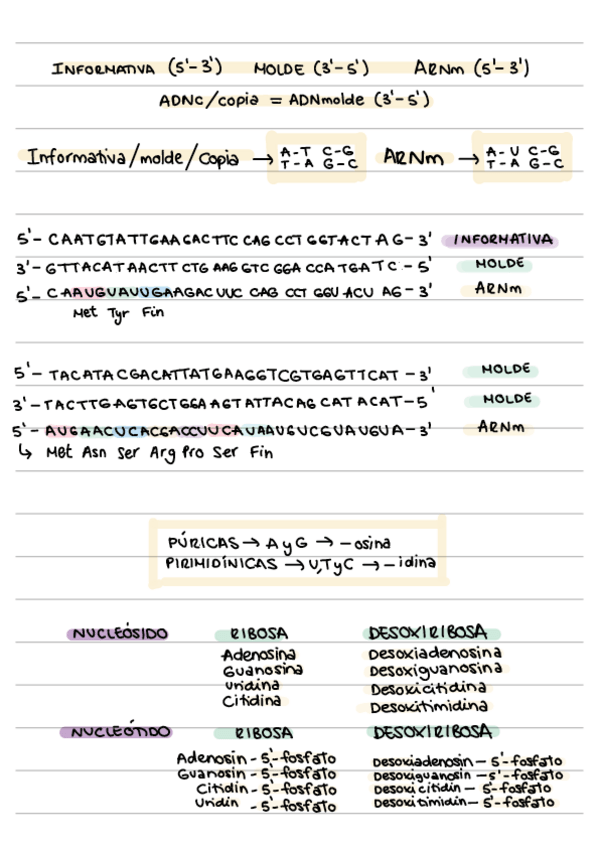 INFORMATIVA (5'-3') MOLDE (3'-5') ARNm (5'-3')
ADNc/copia = ADNmolde (3'-5')
Informativa/molde/copia → A-T C-G ARNm → A-U C-G
T-A G-C T-A G-C
5'- CAATGTATTGAAGACTTC CAG CCT GGTACTAG-3' INFORMATIVA
3'-GTTACATAACTTCTG AAG GTC GGA CCATGATC - 5' MOLDE
5'- CAAUGUAUUGAAGACUUC CAG CCT GGU ACU AG-3' ARNm
Met Tyr Fin
5'-TACATACGACATTATGAAGGTCGTGAGTTCAT-3' MOLDE
3'-TACTTGAGTGCTGGAAGTATTACAGCATACAT-5' MOLDE
5'-AUGAACUCACGACCUUCAUAAUGUCGUAUGUA-3' ARNm
↳ Met Asn Ser Arg Pro Ser Fin
PÚRICAS → A y G → -osina
PIRIMIDÍNICAS → U,TyC → -idina
NUCLEÓSIDO RIBOSA DESOXIRIBOSA
Adenosina Desoxiadenosina
Guanosina Desoxiguanosina
Uridina Desoxicitidina
Citidina Desoxitimidina
NUCLEÓTIDO RIBOSA DESOXIRIBOSA
Adenosin-5'-fosfato Desoxiadenosin-5'-fosfato
Guanosin-5'-fosfato Desoxiguanosin-5'-fosfato
Citidin-5'-fosfato Desoxicitidin-5'-fosfato
Uridin-5'-fosfato Desoxitimidin-5'-fosfato